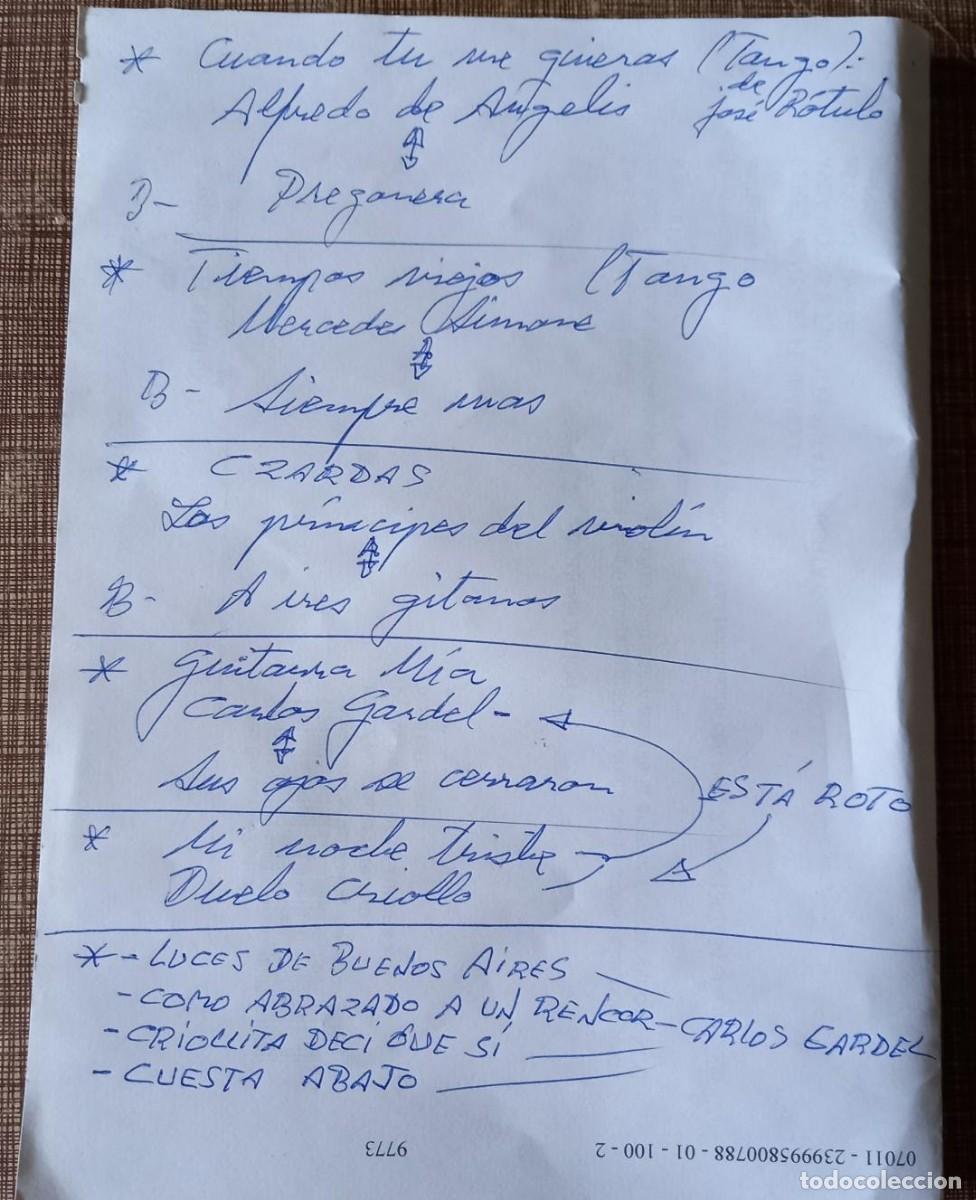 * Cuando tu me quieras (Tango).
Alfredo de Angelis de José Rótulo
B- Pregonera
* Tiempos viejos (Tango
Mercedes Simone
B- Siempre mas
* CZARDAS
Los príncipes del violín
B- Aires gitanos
* Guitarra Mía
Carlos Gardel -
Sus ojos se cerraron
ESTÁ ROTO
* Mi noche triste
Duelo Criollo
* - LUCES DE BUENOS AIRES
- COMO ABRAZADO A UN RENCOR - CARLOS GARDEL
- CRIOLLITA DECI QUE SÍ
- CUESTA ABAJO
07011 - 239995800788 - 01 - 100 - 2 9773
todocoleccion